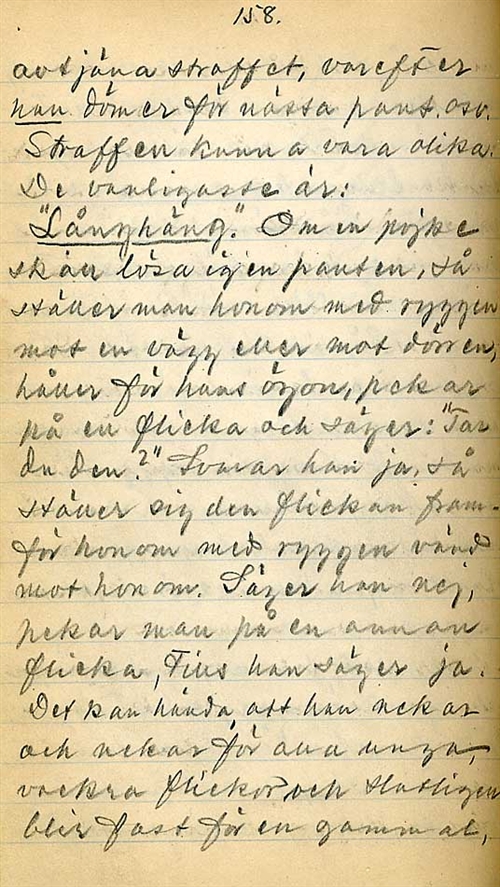 158.
avtjäna straffet, varefter
han dömer för nästa pant. osv.
Straffen kunna vara olika.
De vanligaste är:
"Långhäng". Om en pojke
skall lösa igen panten, så
ställer man honom med ryggen
mot en vägg eller mot dörren,
håller för hans ögon, pekar
på en flicka och säger: "Tar
du den?" Svarar han ja, så
ställer sig den flickan fram-
för honom med ryggen vänd
mot honom. Säger han nej,
pekar man på en annan
flicka, Tills han säger ja.
Det kan hända, att han nekar
och nekar för alla unga,
vackra flickor och slutligen
blir fast för en gammal,